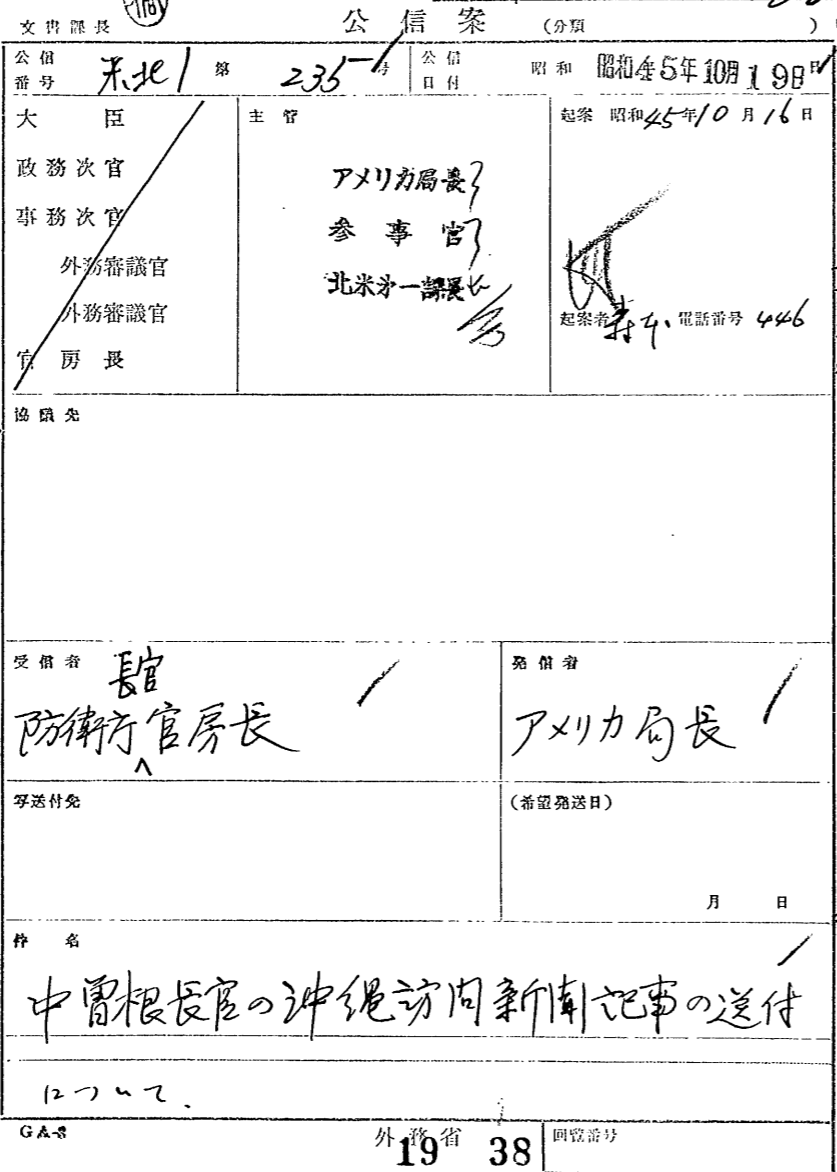 文書課長
公信案 (分類 )
公信番号 米北1 第 235-1 号 公信日付 昭和 昭和45年10月19日
大臣
政務次官
事務次官
外務審議官
外務審議官
官房長
主管
アメリカ局長
参事官
北米第一課長
起案 昭和45年10月16日
起案者 電話番号 446
協議先
受信者
長官
防衛庁官房長
発信者
アメリカ局長
写送付先
(希望発送日)
月 日
件名
中曽根長官の沖縄訪問新聞記事の送付
について.
GA-3
外務省
19 38
回覧番号